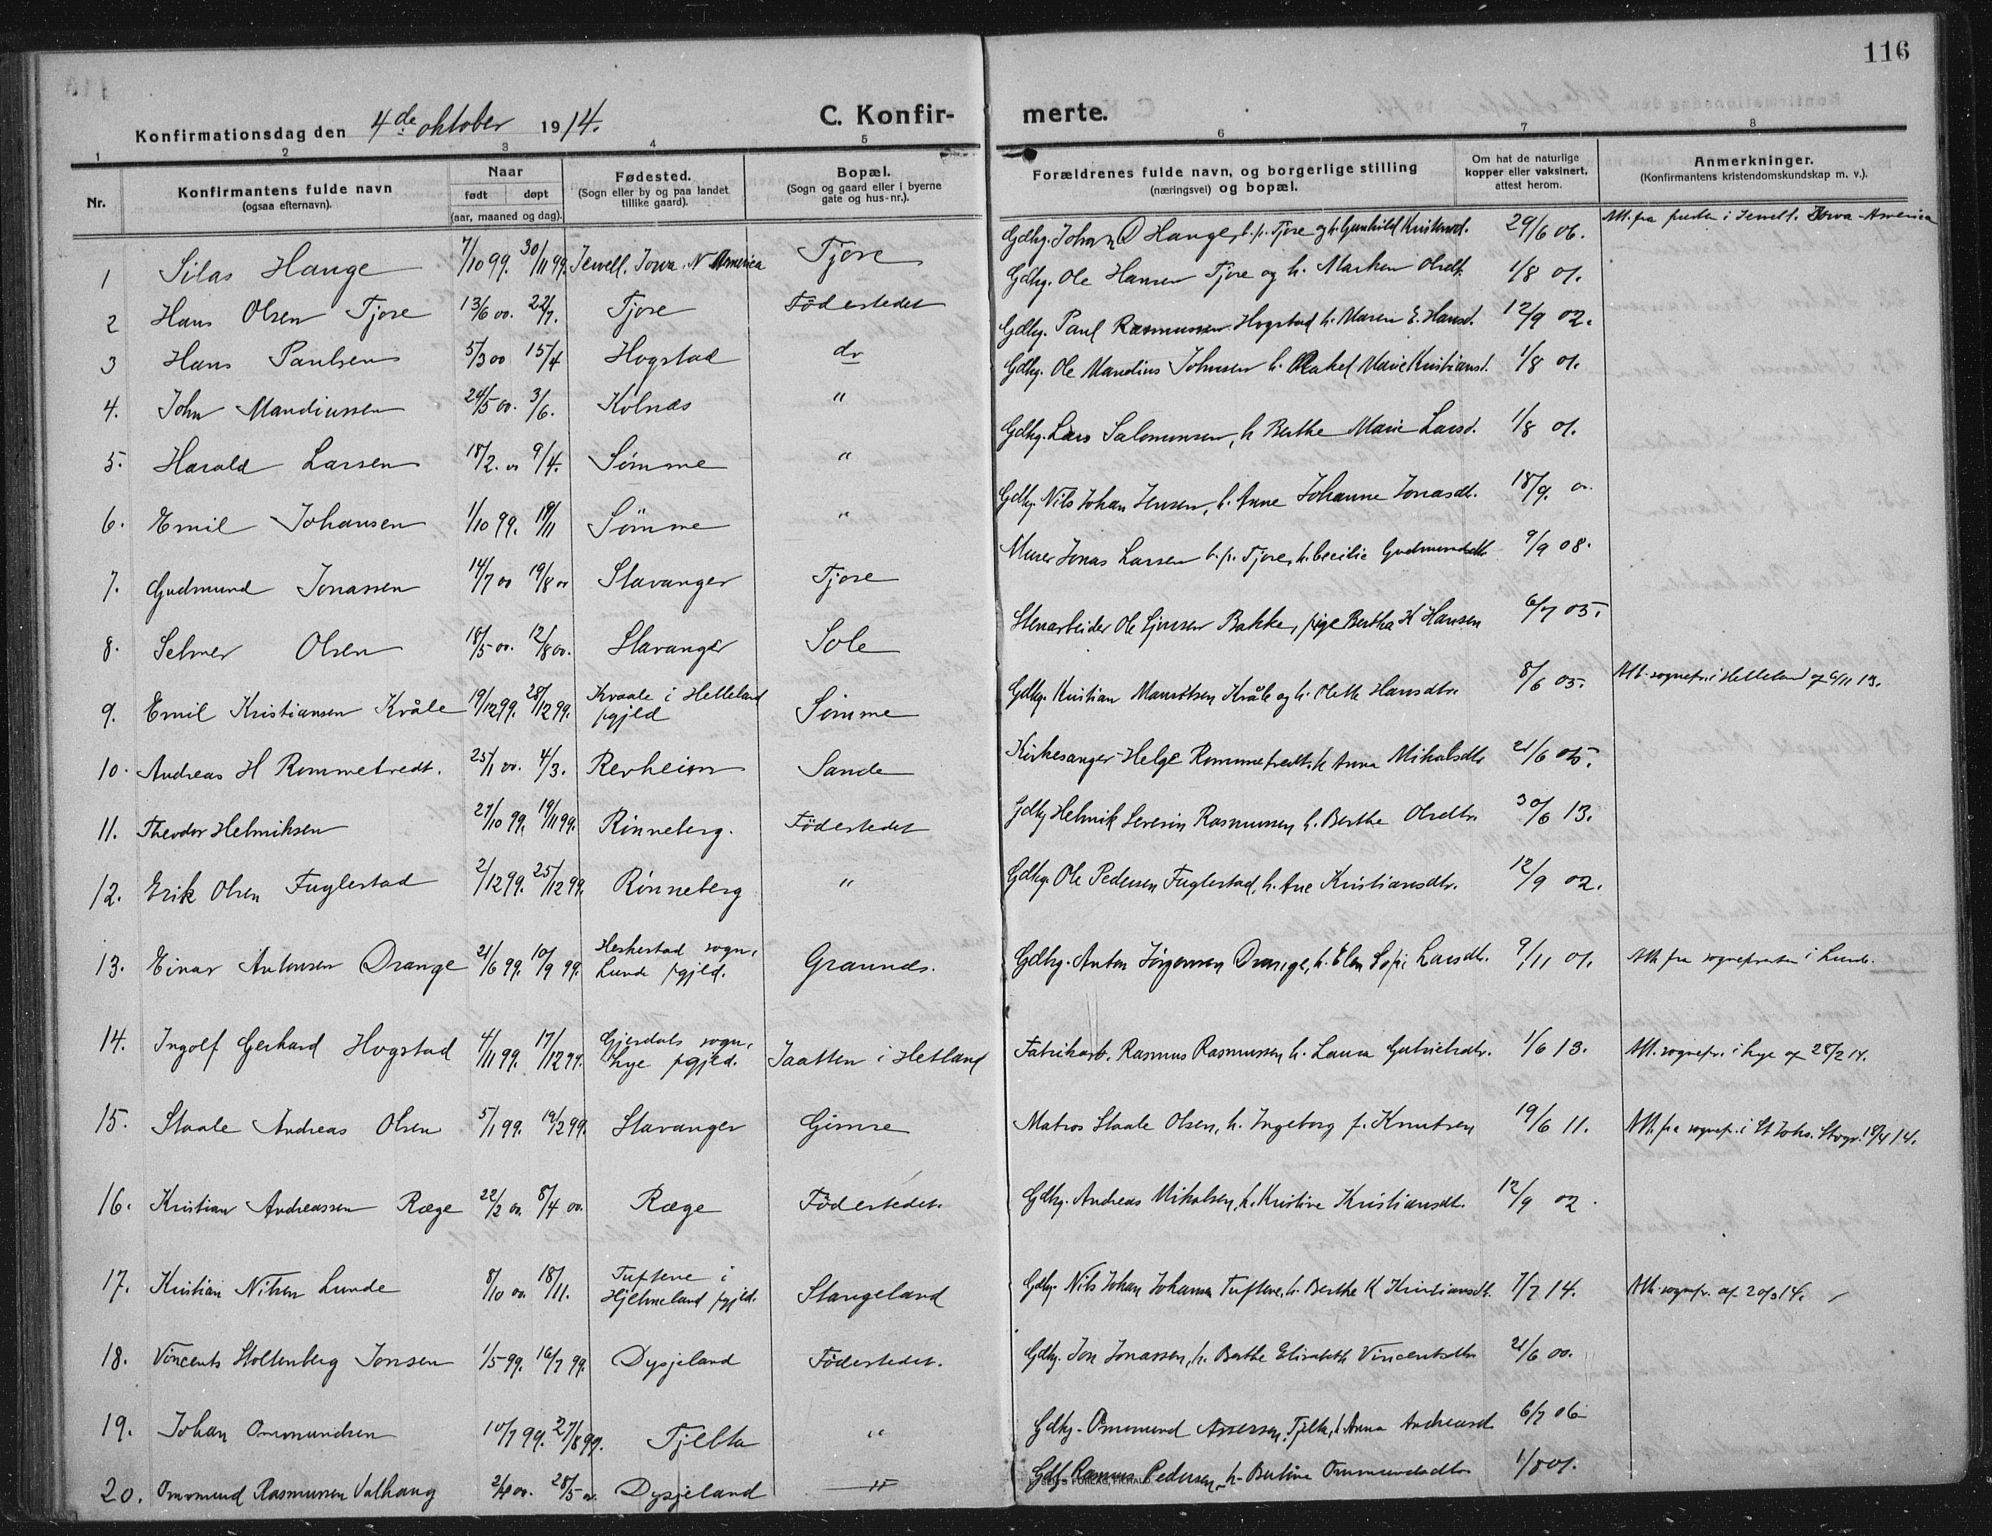 116
Konfirmationsdag den 4de oktober 1914.
C. Konfirmerte.
1 2 3 4 5 6 7 8
Nr.
Konfirmantens fulde navn
(ogsaa efternavn).
Naar
født døpt
(aar, maaned og dag).
Fødested.
(Sogn eller by og paa landet
tillike gaard).
Bopæl.
(Sogn og gaard eller i byerne
gate og hus-nr.).
Forældrenes fulde navn, og borgerlige stilling
(næringsvei) og bopæl.
Om hat de naturlige
kopper eller vaksinert,
attest herom.
Anmerkninger.
(Konfirmantens kristendomskundskap m. v.).
1 Silas Hauge 7/10 99. 30/11 99. Jewell. Iowa. N America Tjore Gdbg. Johan O Hauge, b.p. Tjore og h. Gunhild 29/6 06. Att. fra presten i Jewell. Iowa-America
2 Hans Olsen Tjore 13/6 00. 22/7. Tjore Födestedet Gdbg. Ole Hansen Tjore og h. Marken Olsdt. 1/8 01.
3 Hans Paulsen 5/3 00 15/4 Hogstad do Gdbg. Paul Rasmussen Hogstad h. Maren E. Hansd. 12/9 02.
4. John Mandiussen 24/5 00. 3/6. Kolnæs " Gdbg. Ole Mandius Johnsen h. Rakel Marie Kristiansd. 1/8 01.
5. Harald Larsen 18/2. 00 9/4. Sömme " Gdbg. Lars Salomonsen, h Berthe Marie Larsd. 1/8 01.
6. Emil Johansen 1/10 99. 19/11 Sömme " Gdbg. Nils Johan Jensen, h. Anne Johanne Jonasdt. 18/9. 01.
7. Gudmund Jonassen 14/7 00 19/8 00 Stavanger Tjore Murer Jonas Larsen b.p. Tjore, h. Cecilie Gudmundsdtr 9/9 08.
8. Selmer Olsen 18/5 00. 12/8 00. Stavanger Sole Stenarbeider Ole Bakke, pige Bertha K Hansen 6/7 05.
9. Emil Kristiansen Kvåle 19/12 99. 28/12 99. Kvaale i Helleland pgjeld Sömme Gdbg. Kristian Kvåle og h. Hansdtr. 8/6 05. Att. sognepr. i Helleland af 6/11 13.
10. Andreas H Rommetvedt. 25/1 00. 4/3. Revheim Sande Kirkesanger Helge Rommetvedt, h Anna Mikalsdtr 21/6 05.
11. Theodor Helmiksen 27/10 99. 19/11 99. Rönneberg. Födestedet Gdbg Helmik Severin Rasmussen, h. Berthe Olsdtr. 30/6 13.
12. Erik Olsen Fuglestad 2/12 99. 25/12 99. Rönneberg " Gdbg. Ole Pedersen Fuglestad, h. Ane Kristiansdtr. 12/9 02.
13. Einar Antonsen Drange 21/6 99. 10/9 99. Heskestad sogn, Lunde pgjeld. Graunæs. Gdbg. Anton Jörgensen Drange, h. Elen Sofie Larsdtr. 9/11 01. Att. fra sognepresten i Lunde.
14. Ingolf Gerhard Hogstad 4/11 99. 17/12 99. Gjesdals sogn, Lye pgjeld. Jaatten i Hetland Fabrikarb. Rasmus Rasmussen, h. Laura Gabrielsdtr. 1/6 13. Att. sognepr. i Lye af 28/2 14.
15. Staale Andreas Olsen 5/1 99. 19/2 99. Stavanger Gimre Matros Staale Olsen, h. Ingeborg f. Knutsen 19/6 11. Att. fra sognepr. i St Johs. Stvgr. 18/4 14.
16. Kristian Andreassen Ræge 22/2 00. 8/4 00. Ræge Födestedet. Gdbg. Andreas Mikalsen, h. Kristine Kristiansdt. 12/9 02.
17. Kristian Nilsen Lunde 8/10 00. 18/11. Tuftene i Hjelmeland pgjeld. Stangeland Gdbg. Nils Johan Johansen Tuftene, h. Berthe K Kristiansdt. 7/7 14. Att. sognepr. af 20/3 14.
18. Vincents Stoltenberg Jonsen 1/5 99. 16/7 99. Dysjeland Födestedet. Gdbg. Jon Jonassen, h. Berthe Elisabeth Vincentsdtr 21/6 00.
19. Johan Ommundsen 10/7 99. 27/8 99. Tjelta " Gdbg. Ommund Assersen, Tjelta, h Anna Andreasd 6/7 06
20. Ommund Rasmussen Valhaug 2/4 00. 28/5 00. Dysjeland " Gdbg Rasmus Pedersen, h. Bertine Ommundsdtr 1/8 01.